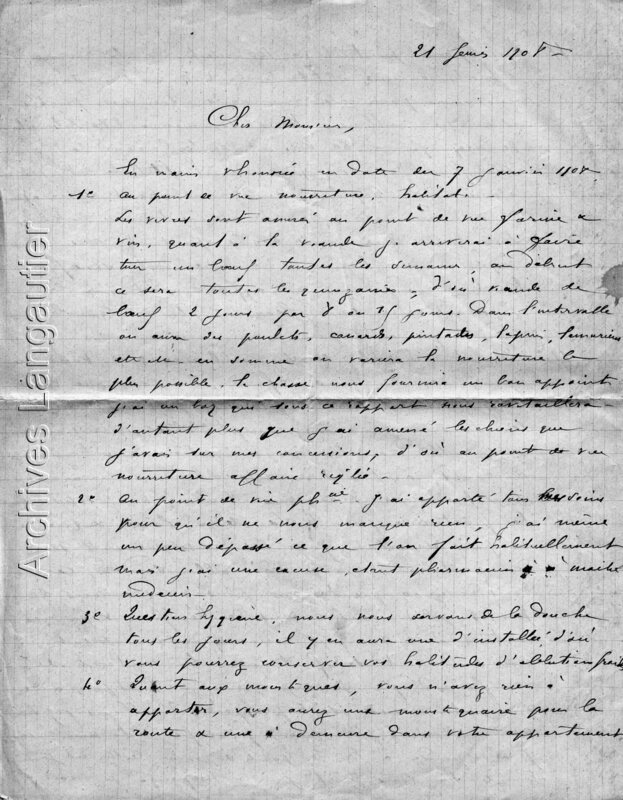 21 1908
Cher Monsieur,
En mains v/honorée en date du 7 Janvier 1908
1o au point de vue nourriture, habitat.
Les vivres sont assuré au point de vue farine &
vin, quant à la viande j'arriverai à faire
tuer un boeuf toutes les semaines, au début
ce sera toutes les quinzaines, d'où viande de
boeuf 2 jours par 8 ou 15 jours. Dans l'intervalle
on aura des poulets, canards, pintades, lapins,
etc en somme on variera la nourriture le
plus possible, la chasse nous fournira un bon appoint
j'ai un qui sous ce rapport nous ravitaillera
d'autant plus que j'ai amené les chiens que
j'avais sur mes concessions, d'où au point de vue
nourriture affaire réglée.
2o au point de vue phcie j'ai apporté tous soins
pour qu'il ne nous manque rien, j'ai même
un peu dépassé ce que l'on fait habituellement
mais j'ai une excuse, étant pharmacien &
médecin.
3o Question hygiène, nous nous servons de la douche
tous les jours, il y en aura une d'installée d'où
vous pourrez conserver vos habitudes d'ablution
4o Quant aux moustiques, vous n'avez rien à
apporter, vous aurez une moustiquaire pour la
route & une à demeure dans votre appartement
Archives Langautier